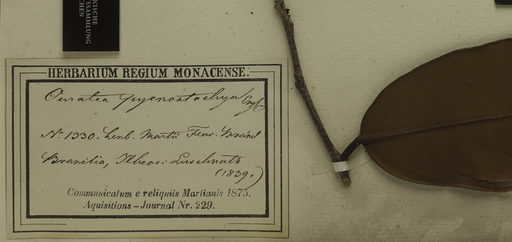 NISCHE
SSAMMLUNG
CHEN
HERBARIUM REGIUM MONACENSE.
Ouratea pycnostachya Engl.
No. 1330. herb. Martii Flor. Brasil
Brasilia, Ilheos: Luschnath
(1839.)
Communicatum e reliquiis Martianis 1875.
Aquisitions – Journal Nr. 229.